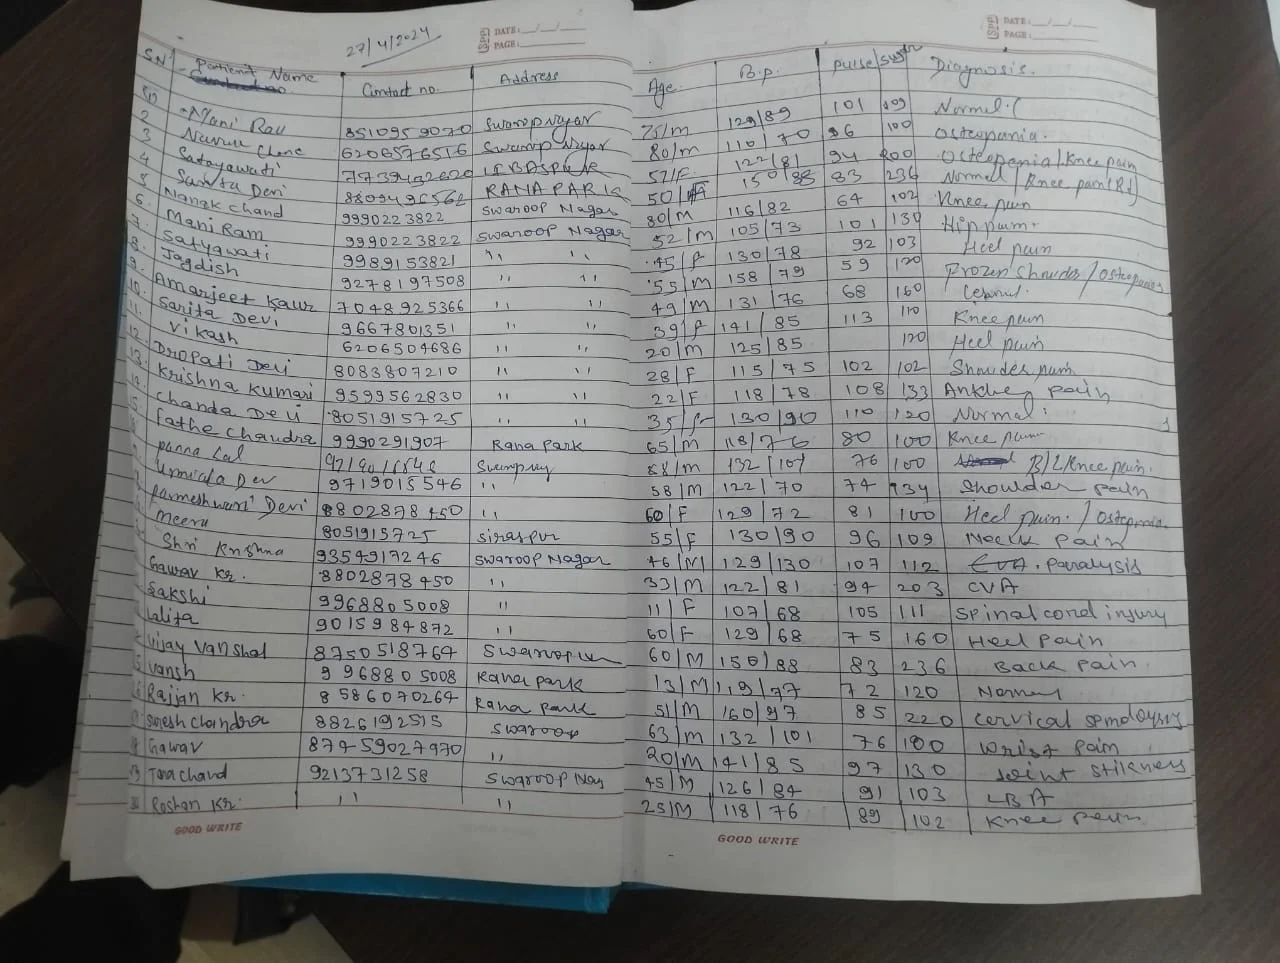 27/4/2024
DATE: __/__/__
PAGE:
DATE: __/__/__
PAGE:
S.N Patient Name Contact no. Address Age B.p. Pulse Diagnosis.
Mani 8510959070 75/M 129/89 101 Normal
2 6206576516 80/M 110/70 96 100 Osteopania.
3 Satayawati 52/F 122/81 94 200 Osteopenia/Knee pain
4 Sunita Devi RANA PARK 50/ 150/88 83 236 Normal/Knee pain (Rt)
5 Nanak chand 9990223822 Swaroop Nagar 80/M 116/82 64 102 Knee pain
6. Mani Ram 9990223822 Swaroop Nagar 52/M 105/73 101 130 Hip pain.
7. Satyawati 9989153821 '' '' 45/F 130/78 92 103 Heel pain
8. Jagdish 9278197508 '' '' 55/M 158/79 59 120 Frozen Shoulder/Osteopania
9. Amarjeet Kaur 7048925366 '' '' 49/M 131/76 68 160
10. Sarita Devi 9667801351 '' '' 39/F 141/85 113 110 Knee pain
11. Vikash 6206504686 '' '' 20/M 125/85 120 Heel pain
12. Dropati Devi 8083807210 '' '' 28/F 115/75 102 102 Shoulder pain
13. Krishna Kumari 9599562830 '' '' 22/F 118/78 108 133 pain
Chanda Devi 8051915725 '' '' 35/ 130/90 110 120 Normal
Fathe Chandra 9990291907 Rana Park 65/M 118/76 80 100 Knee pain
Panna Lal /M 132/101 76 100 B/L Knee pain.
Urmila Dev 9719015546 '' 58/M 122/70 74 134 Shoulder pain
Parmeshwari Devi 8802878450 '' 60/F 129/72 81 100 Heel pain./Osteopania
Meera 8051915725 Siraspur 55/F 130/90 96 109 Neck pain
Shri Krishna 9354917246 Swaroop Nagar 46/M 129/130 107 112 paralysis
Gawav Kr. 8802878450 '' 33/M 122/81 94 203 CVA
Sakshi 9968805008 '' 11/F 107/68 105 111 Spinal cord injury
Lalita 9015984872 '' 60/F 129/68 75 160 Heel pain
Vijay Vanshal 8750518764 60/M 150/88 83 236 Back pain.
Vansh 9968805008 Rana park 13/M 119/77 72 120 Normal
Rajjan Kr. 8586070264 Rana park 51/M 160/97 85 220 cervical
Suresh Chandra 8826192515 Swaroop 63/M 132/101 76 100 wrist pain
Gawav 87459027970 '' 20/M 141/85 97 130 Joint stikness
Tara chand 9213731258 Swaroop 45/M 126/84 91 103 LBA
Roshan Kr. '' '' 25/M 118/76 89 102 Knee pain
GOOD WRITE
GOOD WRITE